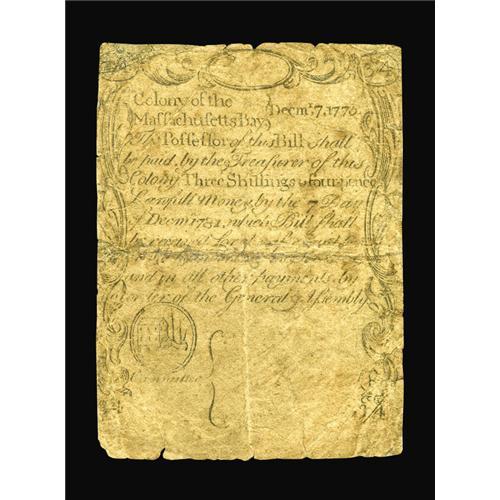 3/4
Colony of the
Massachusetts Bay
Decm.r 7, 1776
The Possessor of this Bill shall
be paid by the Treasurer of this
Colony Three Shillings & fourpence
Lawfull Money by the 7 Day
of Decm.r 1781, which Bill shall
be received for
and in all other payments by
order of the General Assembly
Committee
3/4